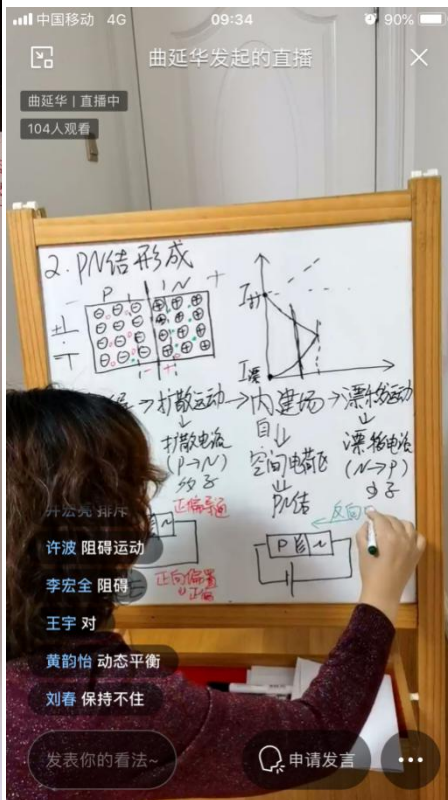 中国移动 4G 09:34 90%
曲延华发起的直播
曲延华 | 直播中
104人观看
2. PN结形成
P N
I扩
I漂
→扩散运动→内建场→漂移运动
扩散电流
(P→N)
多子
空间电荷区
PN结
漂移电流
(N→P)
少子
正偏导通
反向
P N
N
正向偏置
正偏
排斥
许波 阻碍运动
李宏全 阻碍
王宇 对
黄韵怡 动态平衡
刘春 保持不住
发表你的看法~
申请发言